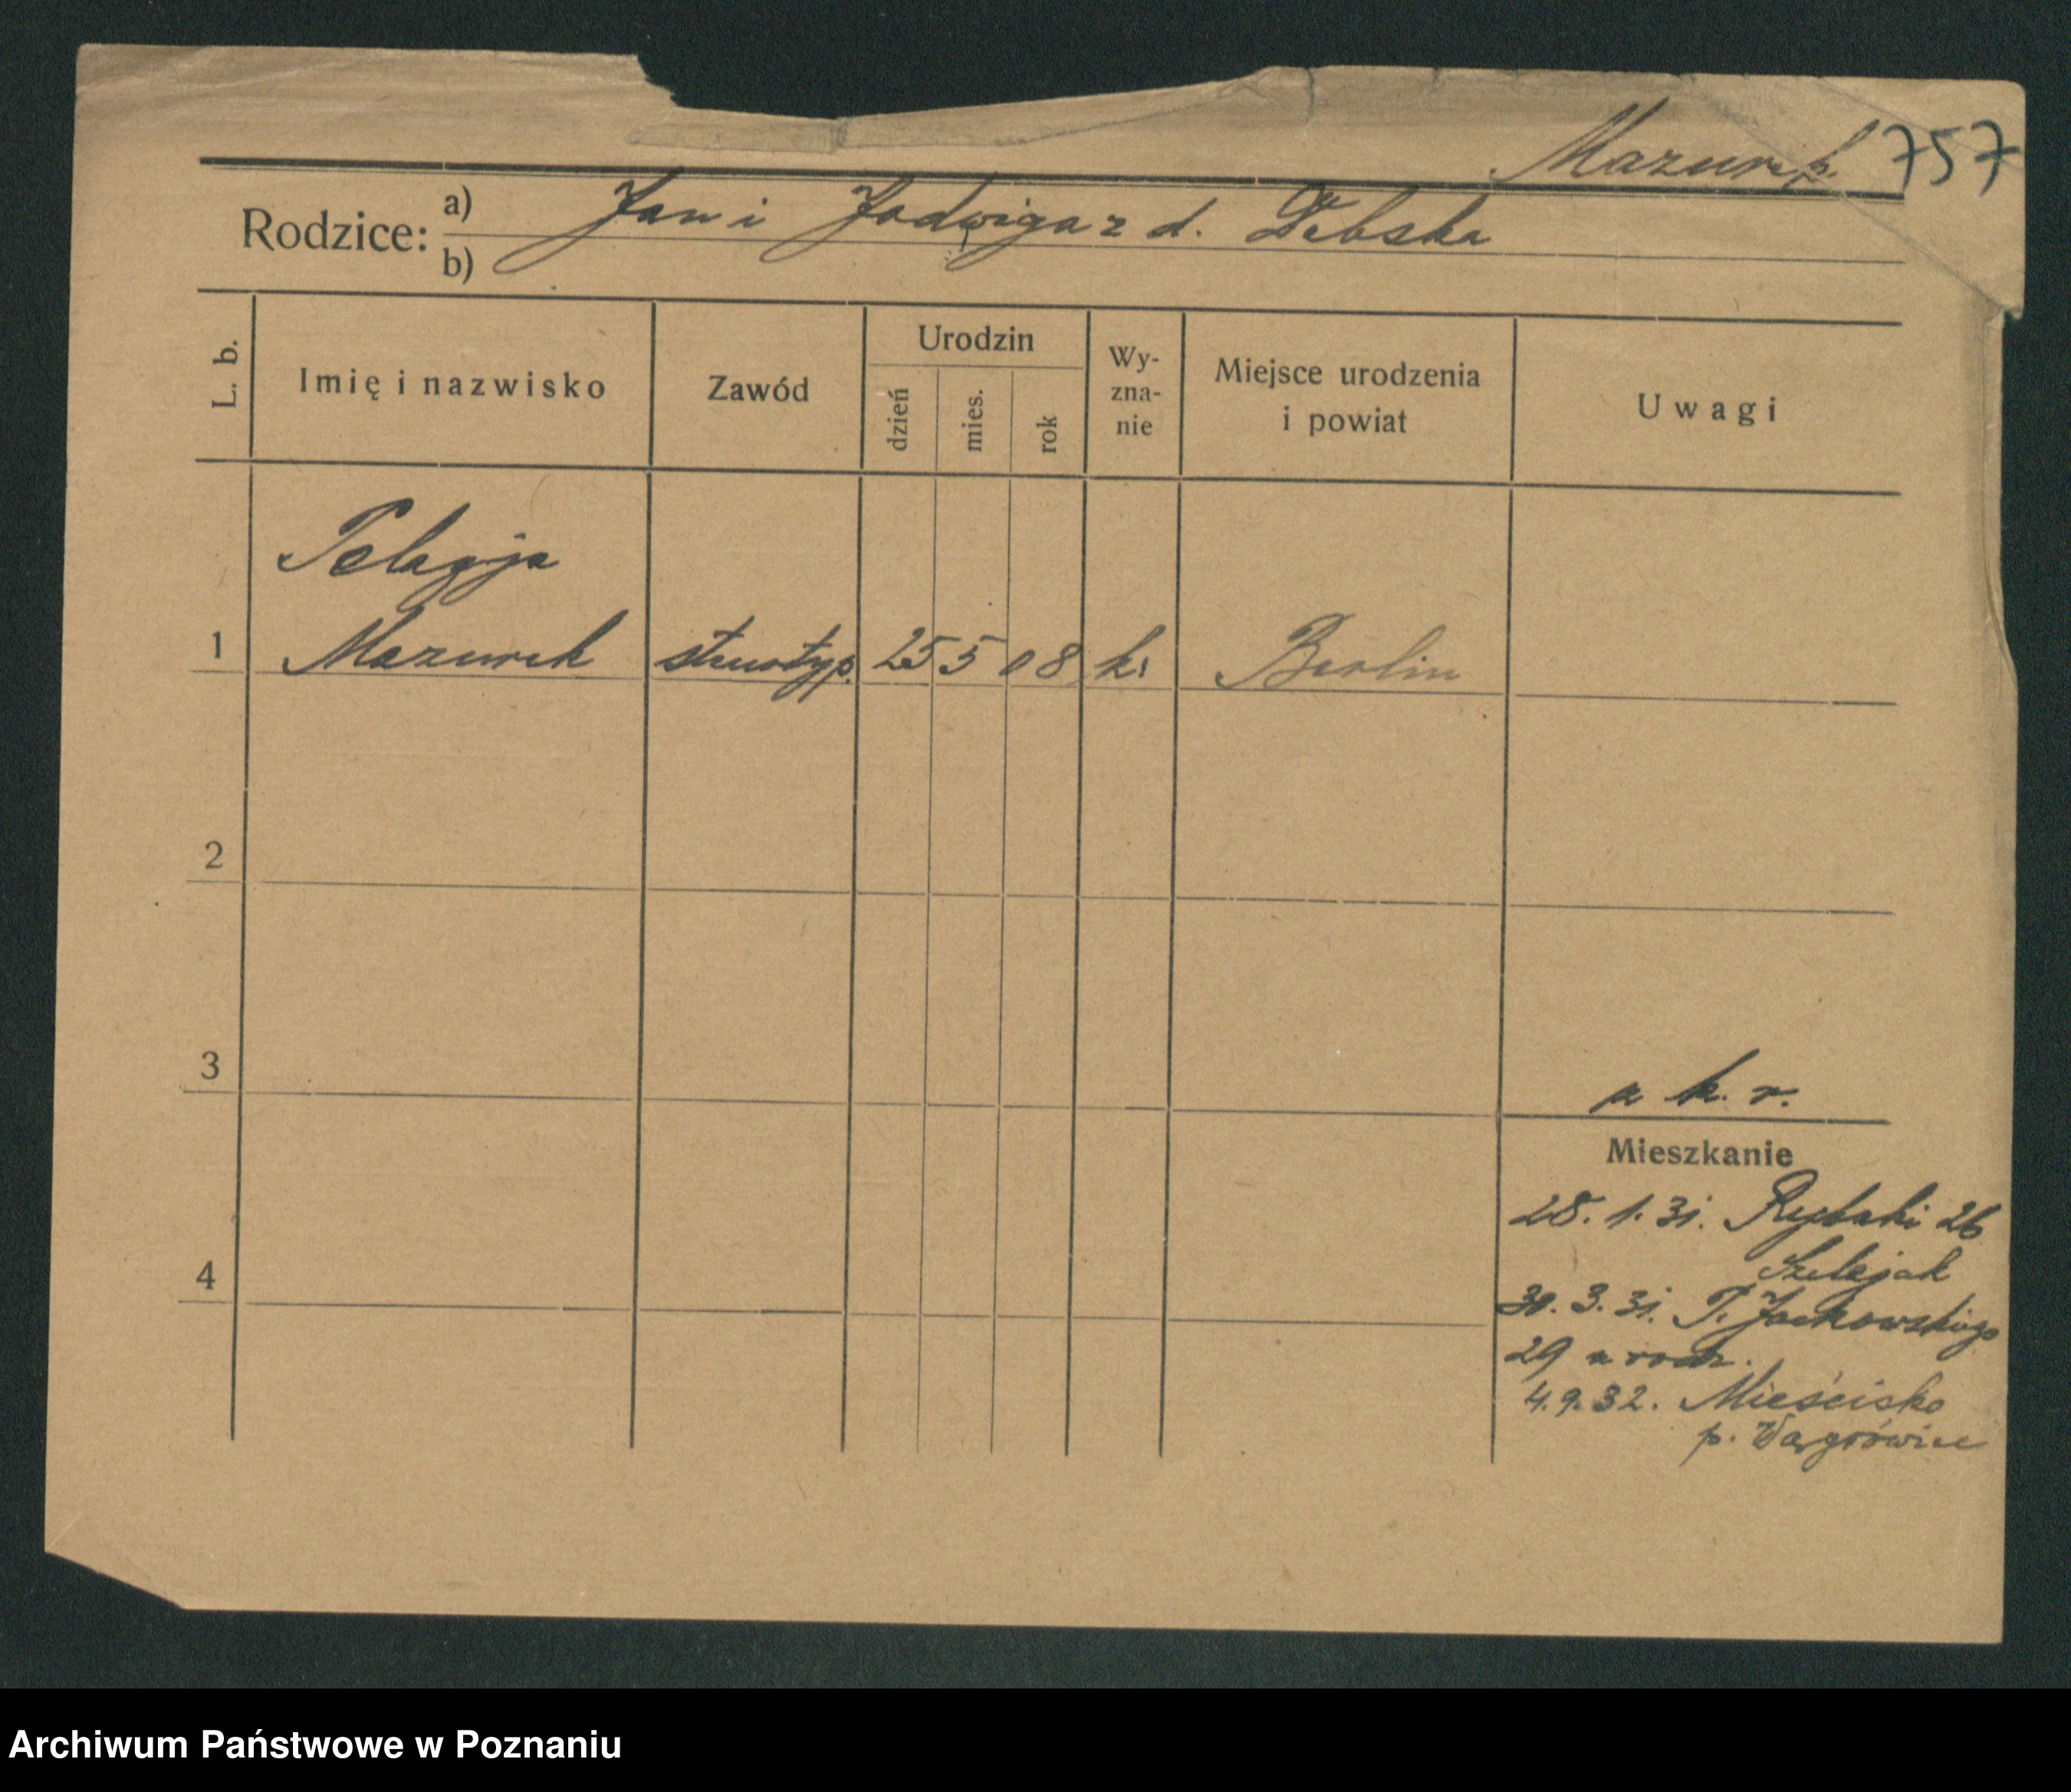 Mazurek 757
Rodzice: a) Jan i Jadwiga z d. Dębska
b)
L. b. Imię i nazwisko Zawód Urodzin dzień mies. rok Wy-zna-nie Miejsce urodzenia i powiat Uwagi
Pelagja
1 Mazurek stenotyp. 25 5 08 k. Berlin
2
3
k. r.
Mieszkanie
28. 1. 31. Rybaki 26
Szelejak
4
30. 3. 31. P. Jackowskiego
29 u rodz.
4. 9. 32. Mieścisko
p. Wągrówiec
Archiwum Państwowe w Poznaniu